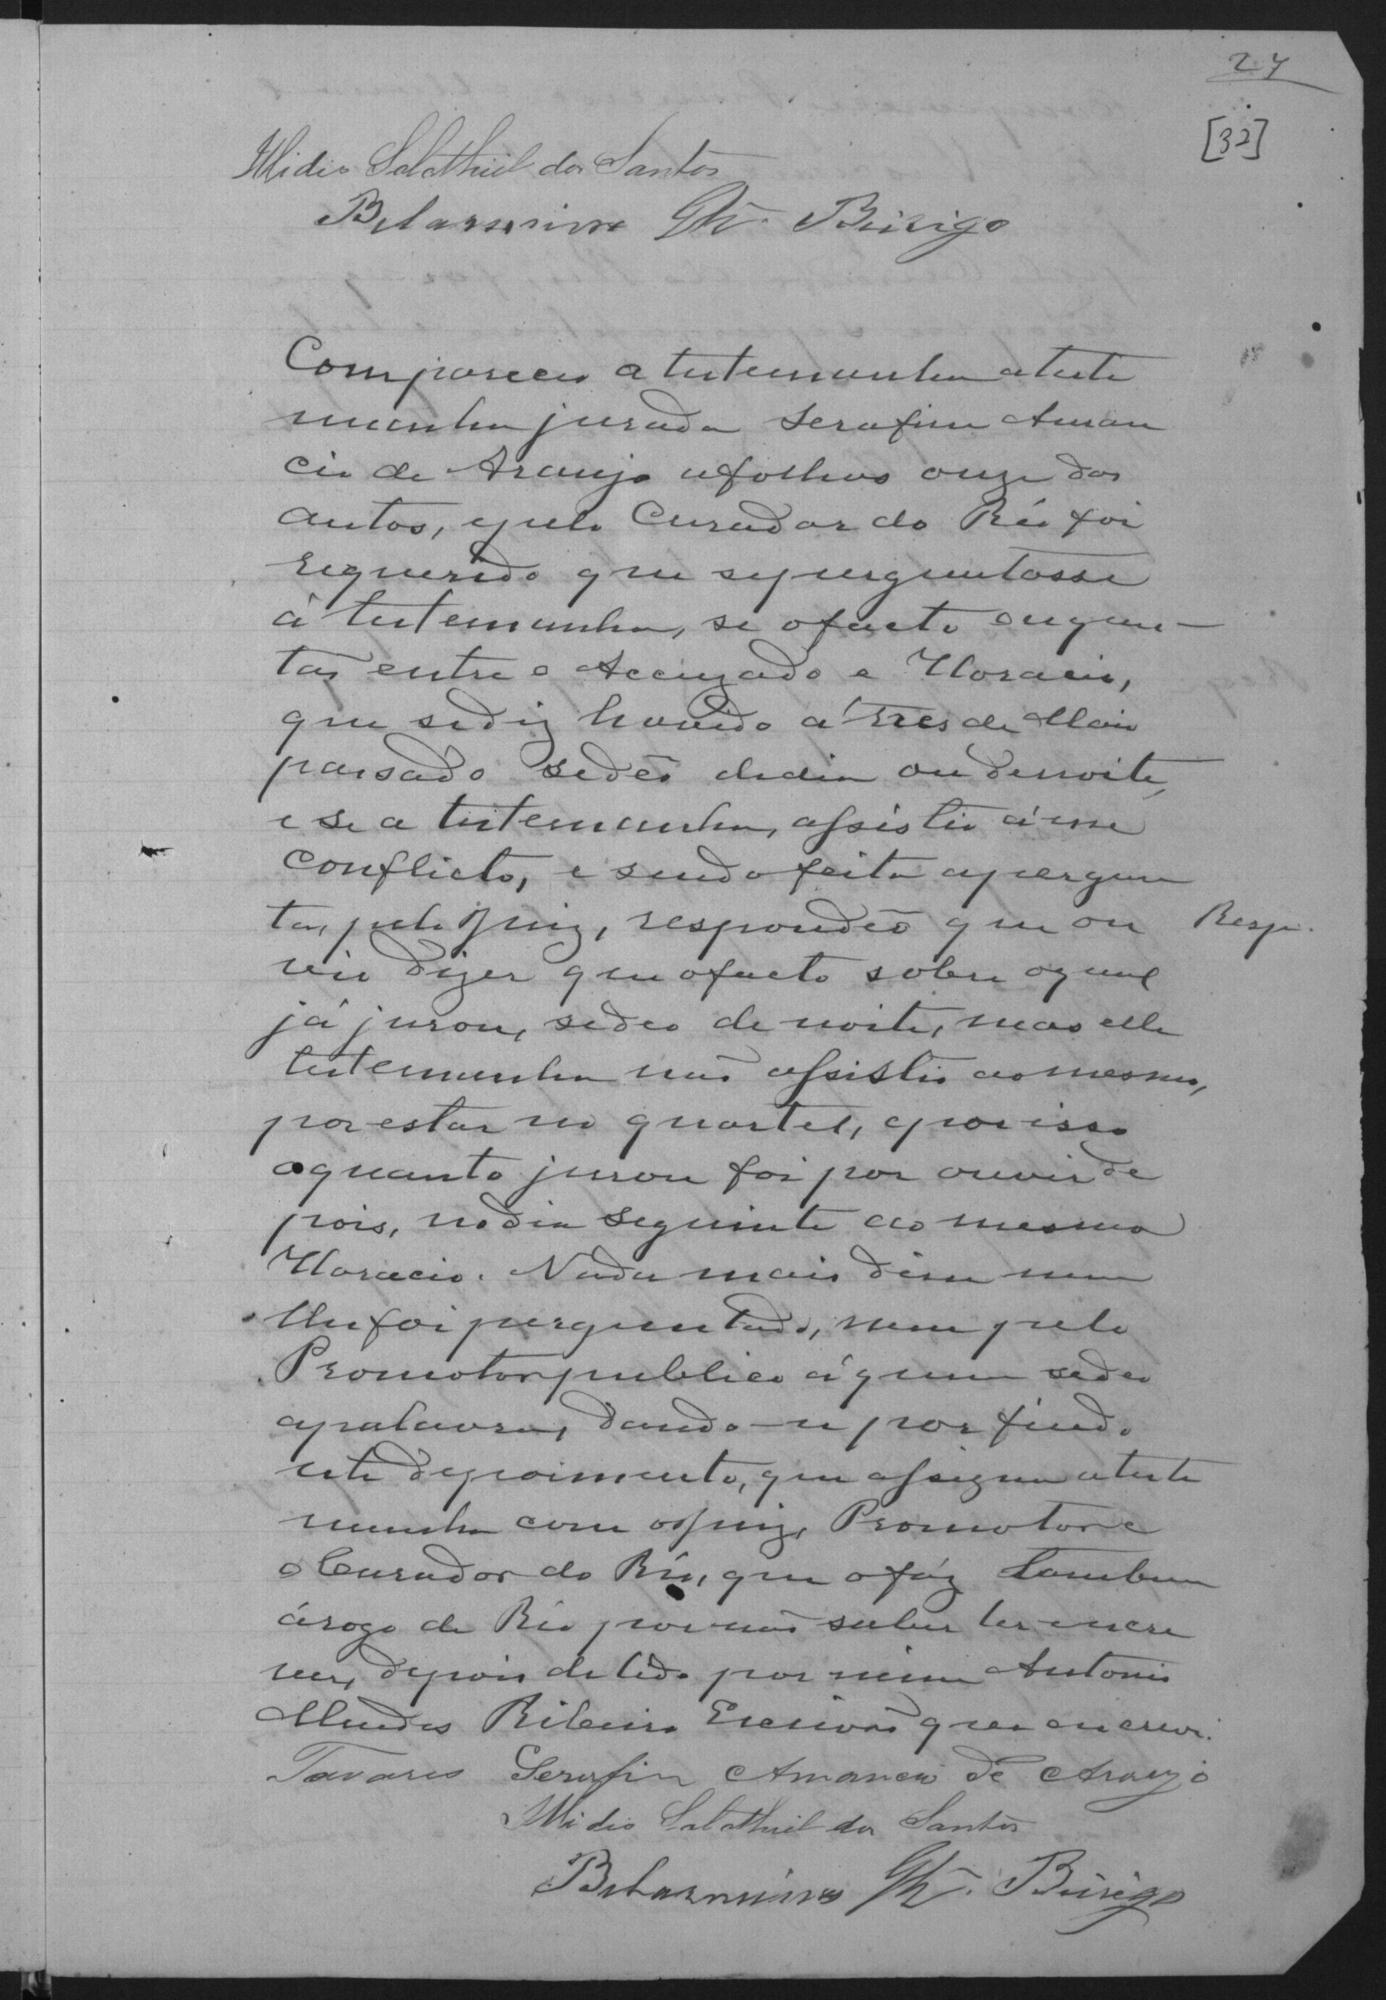 27
[32]
Midio Salathiel dos Santos
Belarmino Gh. Búrigo
Compareceu a testemunha a teste
munha jurada Serafim Aman
cio de Araujo a folhas onze dos
autos, e pelo Curador do Réo foi
requerido que se perguntasse
á testemunha, se o facto
entre o Accuzado e Horacio,
que se diz havido á tres de Maio
passado se dêo de dia ou de noite,
e se a testemunha, assistio á esse
conflicto, e sendo feita a pergun
ta, pelo Juiz, respondêo que ou
Resp.
vio dizer que o facto sobre o qual
já jurou, se deo de noite, mas elle
testemunha não assistio ao mesmo,
por estar no quartel, e por isso
o quanto jurou foi por ouvir de
pois, no dia seguinte ao mesmo
Horacio. Nada mais disse nem
lhe foi perguntado, nem pelo
Promotor publico á quem se deo
a palavra, dando-se por findo
este depoimento, que assigna a teste
munha com o Juiz, Promotor e
o Curador do Réo, que o fáz tambem
á rogo do Réo por não saber ler e escre
ver, depois de lido por mim Antonio
Mendes Ribeiro Escrivão que escrevi.
Tavares Serafin Amancio de Araujo
Midio Salathiel dos Santos
Belarmino Gh. Búrigo